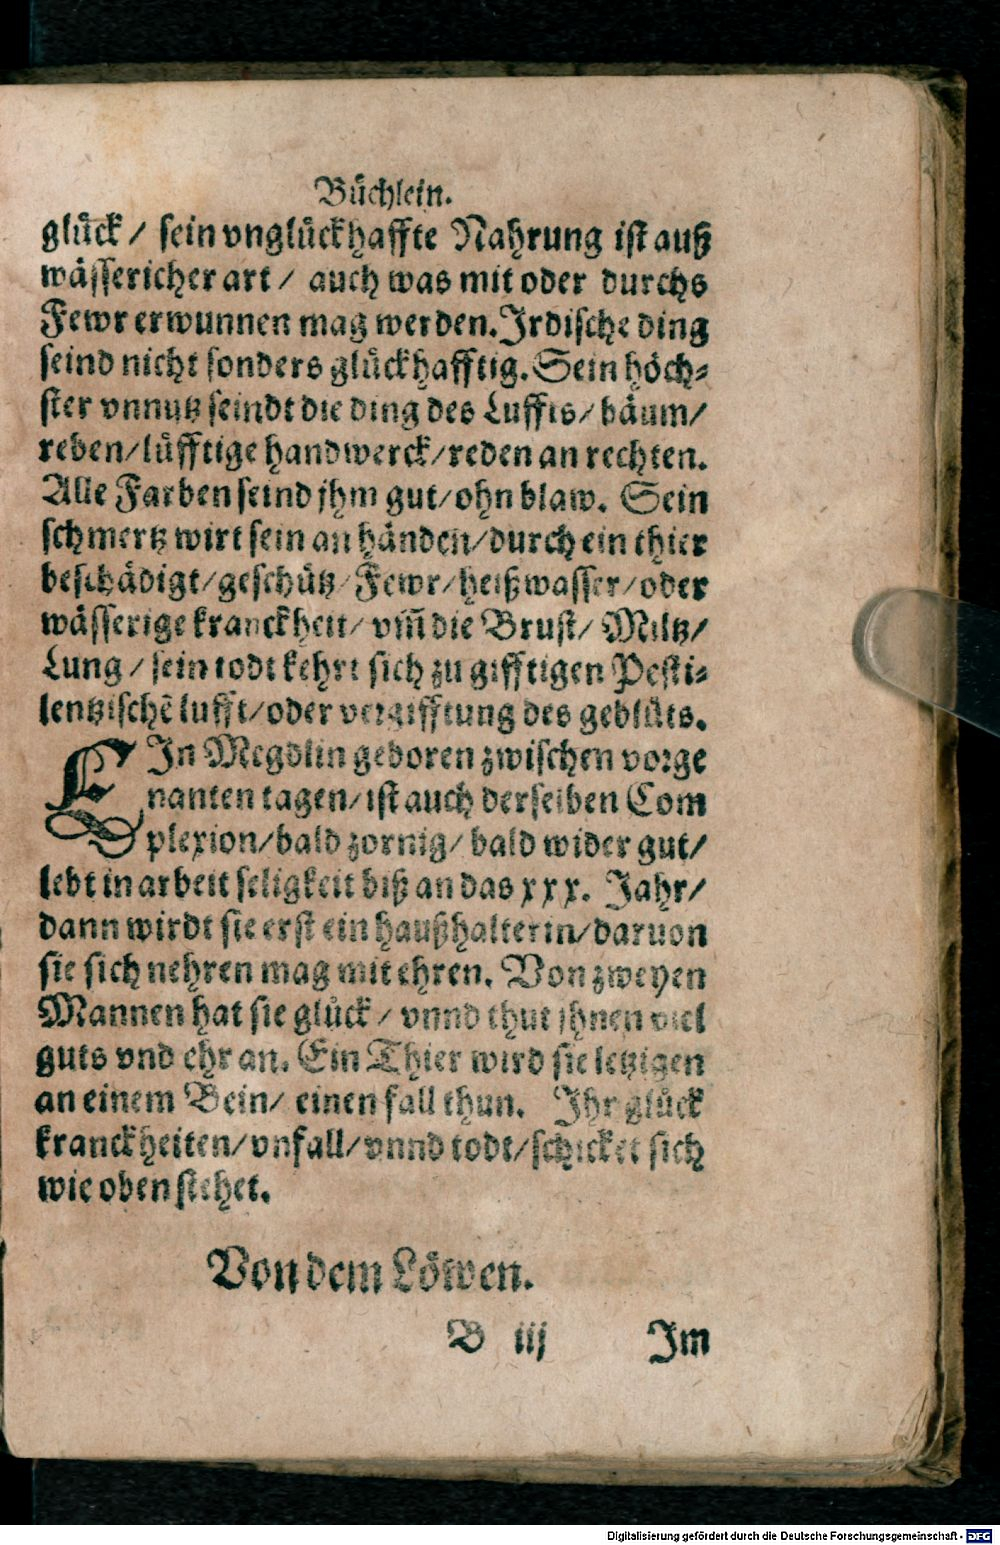 Büchlein.
glück / sein vnglückhaffte Nahrung ist auß
wässericher art / auch was mit oder durchs
Fewr erwunnen mag werden. Irdische ding
seind nicht sonders glückhafftig. Sein höch⸗
ster vnnutz seindt die ding des Luffts / bäum /
reben / lüfftige handwerck / reden an rechten.
Alle Farben seind jhm gut / ohn blaw. Sein
schmertz wirt sein an händen / durch ein thier
beschädigt / geschütz / Fewr / heiß wasser / oder
wässerige kranckheit / vm̃ die Brust / Miltz /
Lung / sein todt kehrt sich zu gifftigen Pesti⸗
lentzischẽ lufft / oder vergifftung des geblüts.
EIn Megdlin geboren zwischen vorge
nanten tagen / ist auch derselben Com
plexion / bald zornig / bald wider gut /
lebt in arbeit seligkeit biß an das xxx. Jahr /
dann wirdt sie erst ein haußhalterin / daruon
sie sich nehren mag mit ehren. Von zweyen
Mannen hat sie glück / vnnd thut jhnen viel
guts vnd ehr an. Ein Thier wird sie letzigen
an einem Bein / einen fall thun. Ihr glück
kranckheiten / vnfall / vnnd todt / schicket sich
wie oben stehet.
Von dem Löwen.
B iij Im
Digitalisierung gefördert durch die Deutsche Forschungsgemeinschaft - DFG